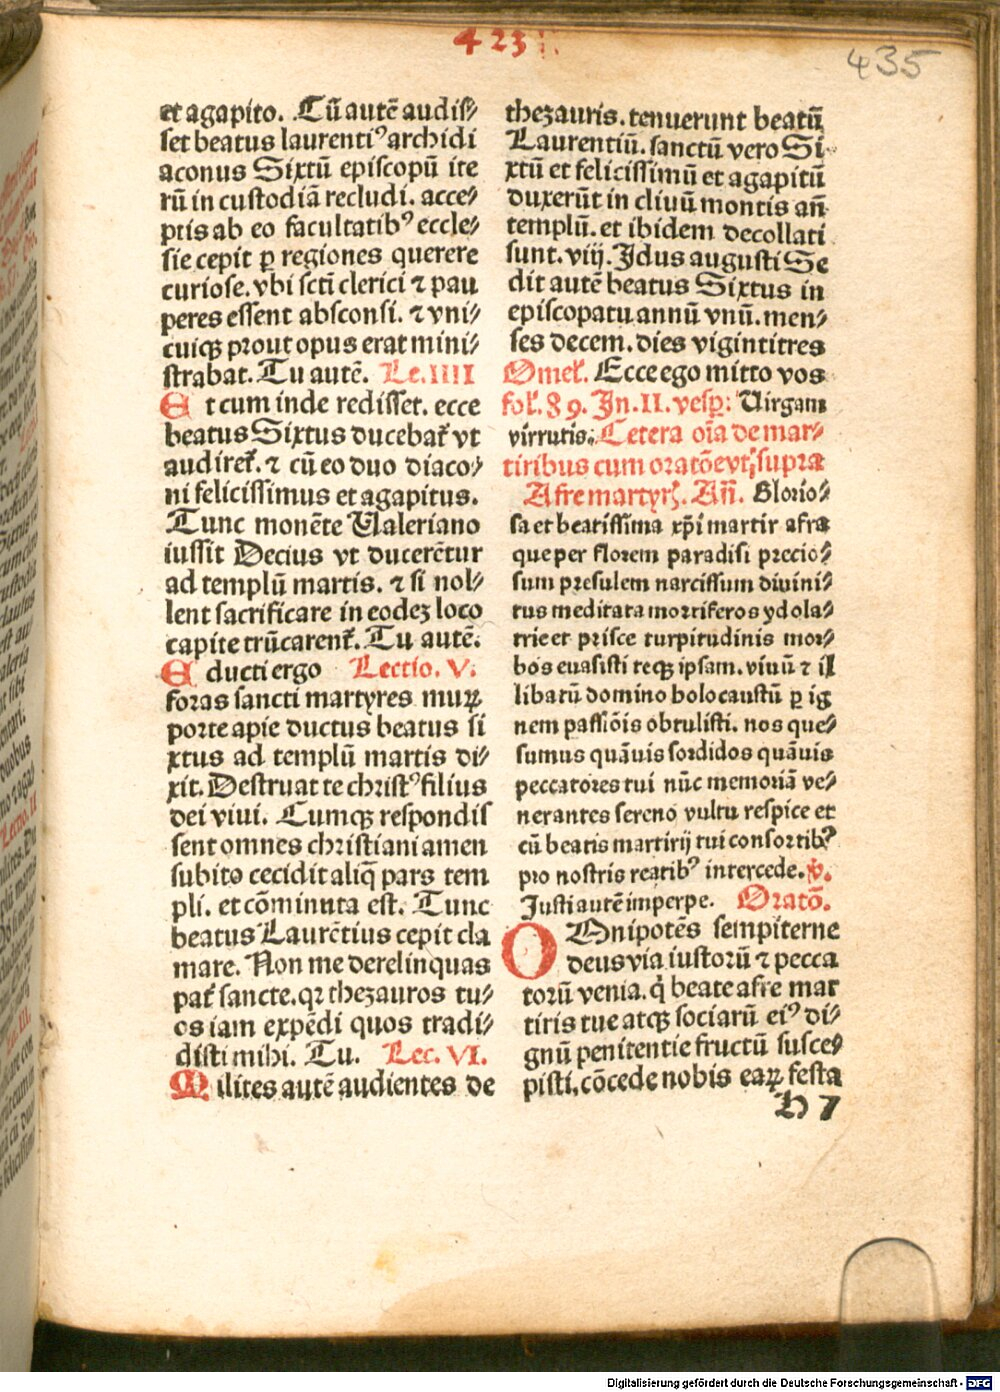 423
435
et agapito. Cū autē audis⸗
set beatus laurentiꝰ archidi
aconus Sixtū episcopū ite
rū in custodiā recludi. acce⸗
ptis ab eo facultatibꝰ eccle⸗
sie cepit ꝑ regiones querere
curiose. vbi scti clerici ⁊ pau
peres essent absconsi. ⁊ vni⸗
cuiqꝫ prout opus erat mini⸗
strabat. Tu autē. Le. IIII
Et cum inde redisset. ecce
beatus Sixtus ducebat̃ vt
audiret̃. ⁊ cū eo duo diaco⸗
ni felicissimus et agapitus.
Tunc monēte Ualeriano
iussit Decius vt ducerētur
ad templū martis. ⁊ si nol⸗
lent sacrificare in eodeꝫ loco
capite trūcarent̃. Tu autē.
Educti ergo Lectio. V.
foras sancti martyres muꝝ
porte apie ductus beatus si
xtus ad templū martis di⸗
xit. Destruat te christꝰ filius
dei viui. Cumqꝫ respondis
sent omnes christiani amen
subito cecidit aliq̄ pars tem
pli. et cōminuta est. Tunc
beatus Laurētius cepit cla
mare. Non me derelinquas
pat̃ sancte. qꝛ thezauros tu⸗
os iam expēdi quos tradi⸗
disti mihi. Tu. Lec. VI.
Milites autē audientes de
thezauris. tenuerunt beatū
Laurentiū. sanctū vero Si⸗
xtū et felicissimū et agapitū
duxerūt in cliuū montis an̄
templū. et ibidem decollati
sunt. viij. Idus augusti Se
dit autē beatus Sixtus in
episcopatu annū vnū. men⸗
ses decem. dies vigintitres
Omel̃. Ecce ego mitto vos
fol̃. 89. In. II. vesp̄: Uirgam
virtutis. Cetera oīa de mar⸗
tiribus cum oratōe vt supra
Afre martyr̃. An̄. Glorio⸗
sa et beatissima xp̄i martir afra
que per florem paradisi precio⸗
sum presulem narcissum diuini⸗
tus meditata mortiferos ydola⸗
trie et prisce turpitudinis mor⸗
bos euasisti teqꝫ ipsam. viuū ⁊ il
libatū domino holocaustū ꝑ ig
nem passiōis obtulisti. nos que⸗
sumus quāuis sordidos quāuis
peccatores tui nūc memoriā ve⸗
nerantes sereno vultu respice et
cū beatis martirij tui consortibꝰ
pro nostris reatibꝰ intercede. ℣.
Justi autē imperpe. Oratō.
OMnipotēs sempiterne
deus via iustorū ⁊ pecca
torū venia. q̇ beate afre mar
tiris tue atqꝫ sociarū eiꝰ di⸗
gnū penitentie fructū susce⸗
pisti. cōcede nobis eaꝝ festa
H 7
Digitalisierung gefördert durch die Deutsche Forschungsgemeinschaft - DFG